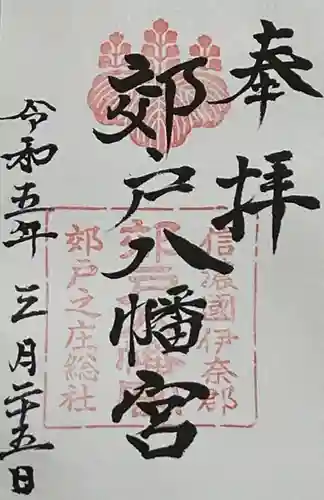 奉拝
郊戸八幡宮
令和五年三月二十五日
信濃國伊奈郡
郊戸八幡宮
郊戸之庄総社